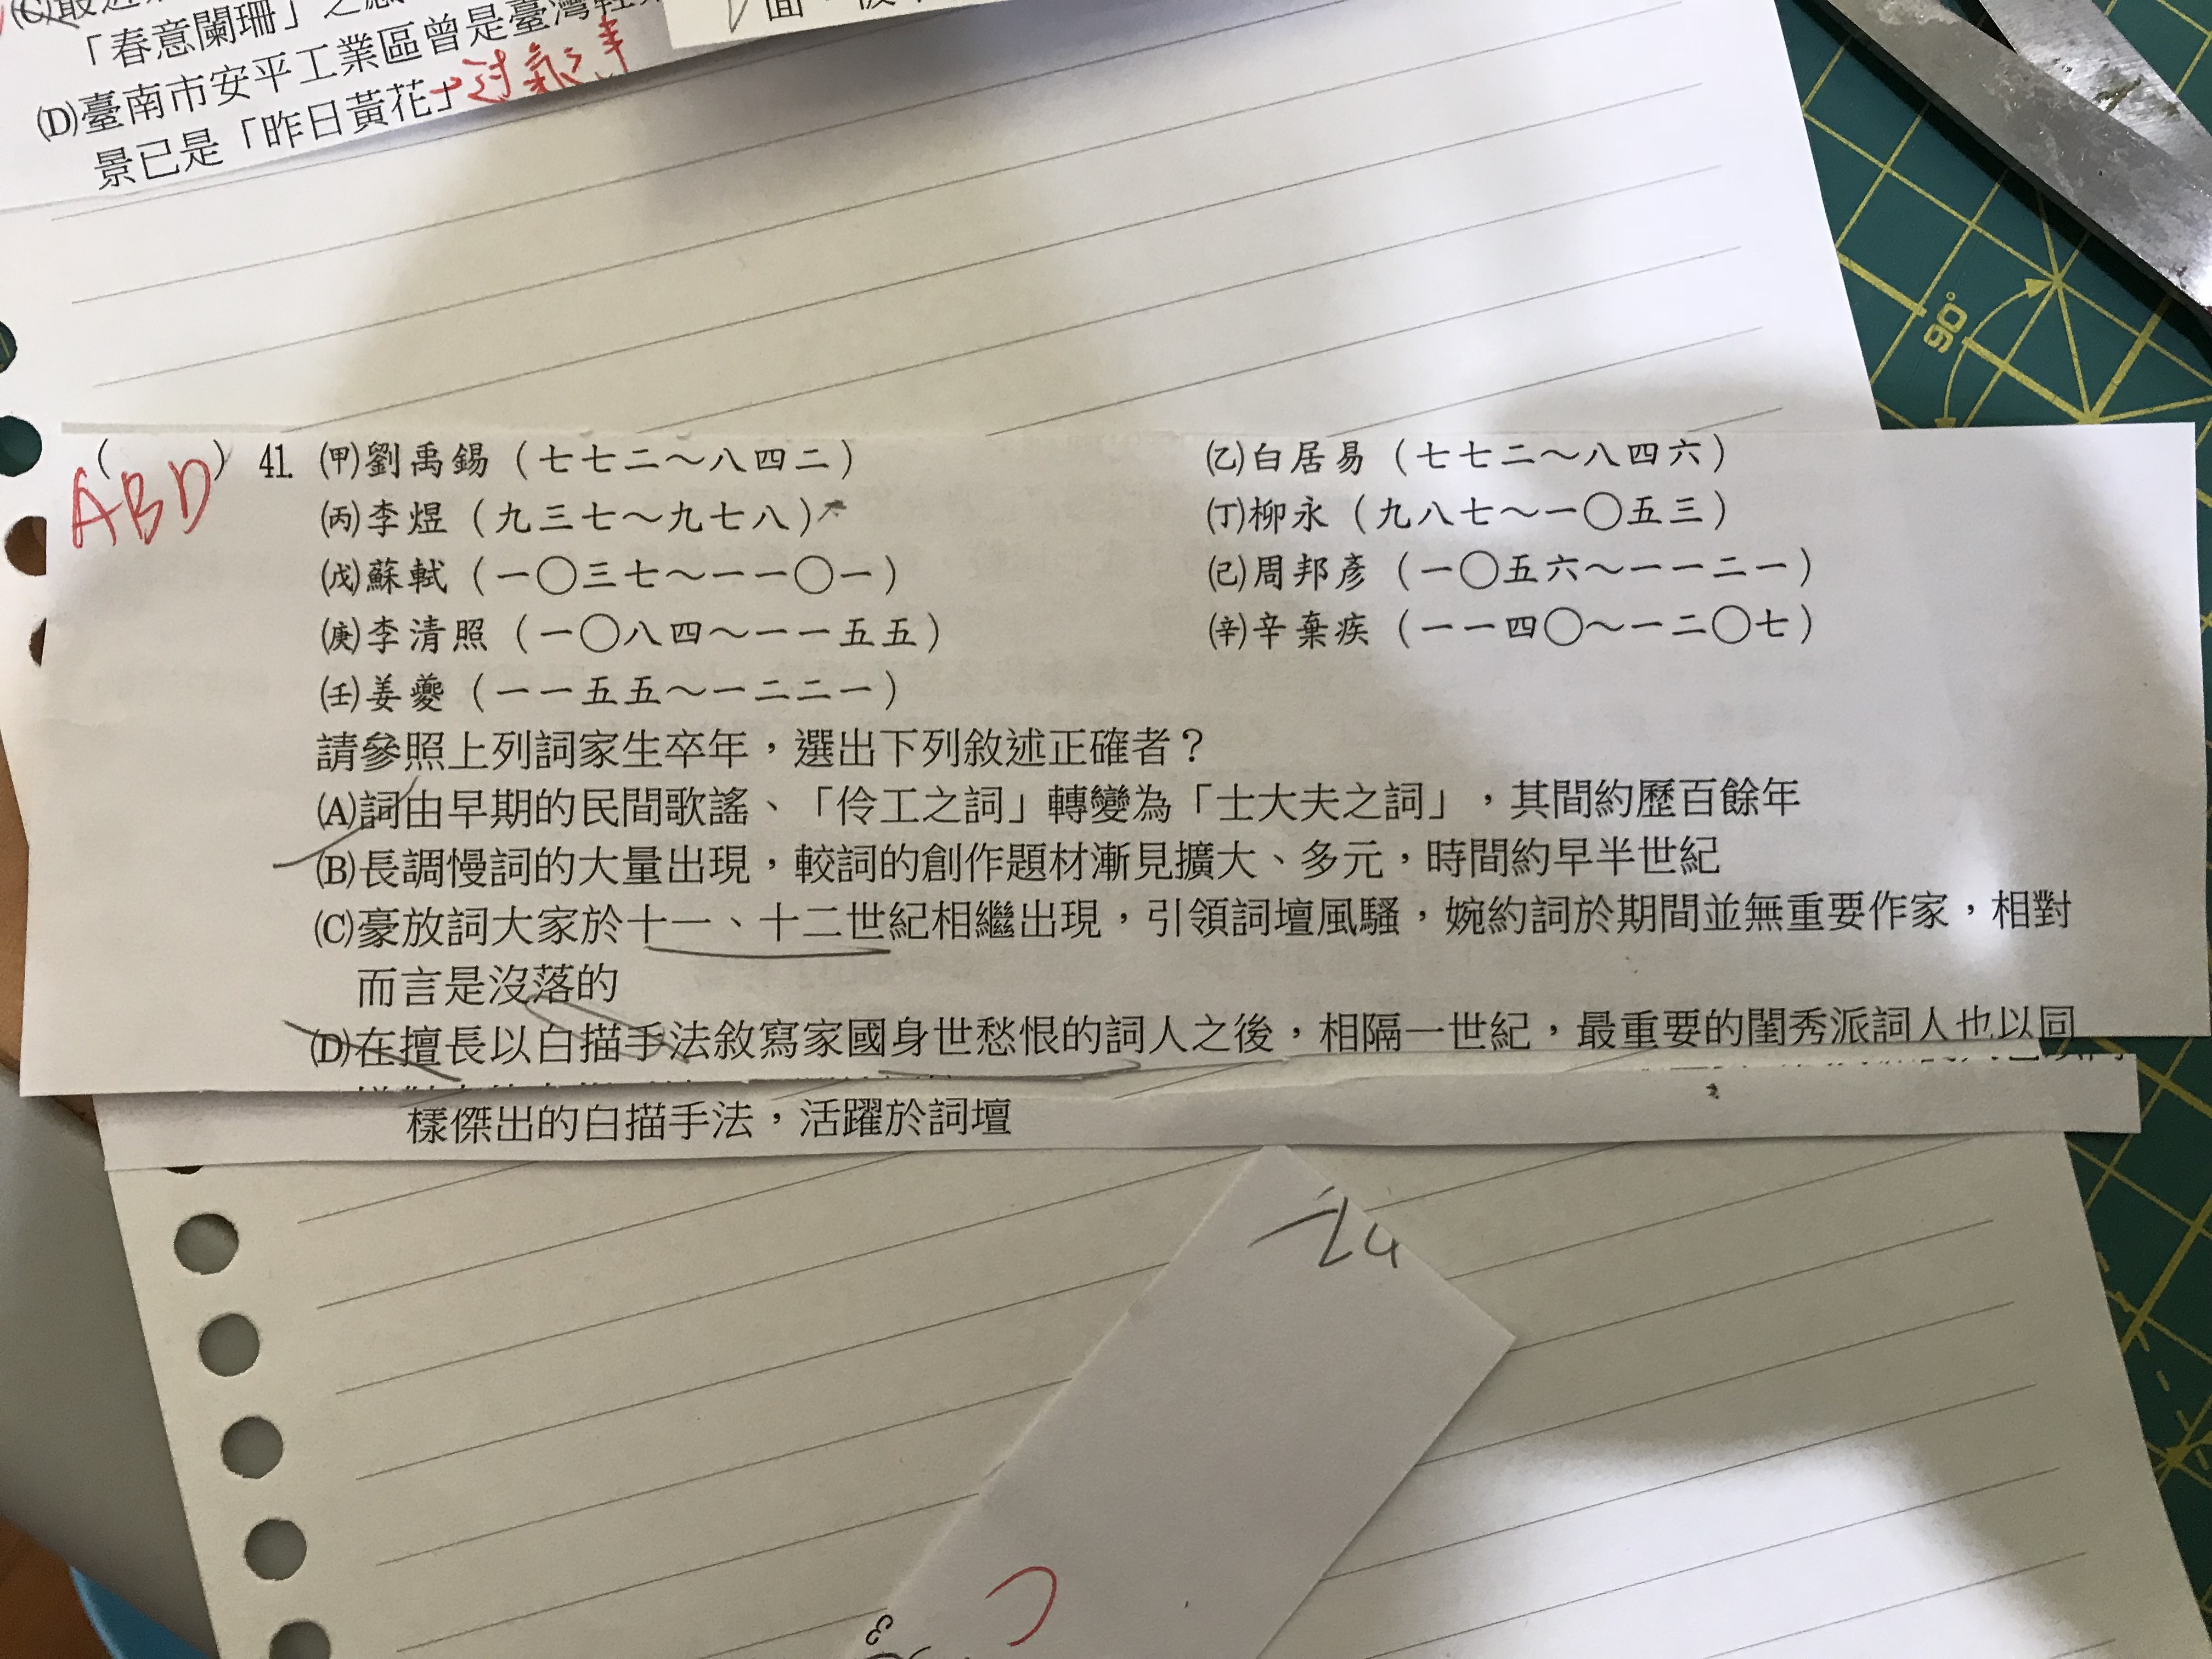 「春意闌珊」之感
(D)臺南市安平工業區曾是臺灣輕
景已是「昨日黃花」→過氣之事
ABD
( ) 41. (甲)劉禹錫(七七二～八四二) (乙)白居易(七七二～八四六)
(丙)李煜(九三七～九七八) (丁)柳永(九八七～一〇五三)
(戊)蘇軾(一〇三七～一一〇一) (己)周邦彥(一〇五六～一一二一)
(庚)李清照(一〇八四～一一五五) (辛)辛棄疾(一一四〇～一二〇七)
(壬)姜夔(一一五五～一二二一)
請參照上列詞家生卒年，選出下列敘述正確者？
(A)詞由早期的民間歌謠、「伶工之詞」轉變為「士大夫之詞」，其間約歷百餘年
(B)長調慢詞的大量出現，較詞的創作題材漸見擴大、多元，時間約早半世紀
(C)豪放詞大家於十一、十二世紀相繼出現，引領詞壇風騷，婉約詞於期間並無重要作家，相對
而言是沒落的
(D)在擅長以白描手法敘寫家國身世愁恨的詞人之後，相隔一世紀，最重要的閨秀派詞人也以同
樣傑出的白描手法，活躍於詞壇
24
90°